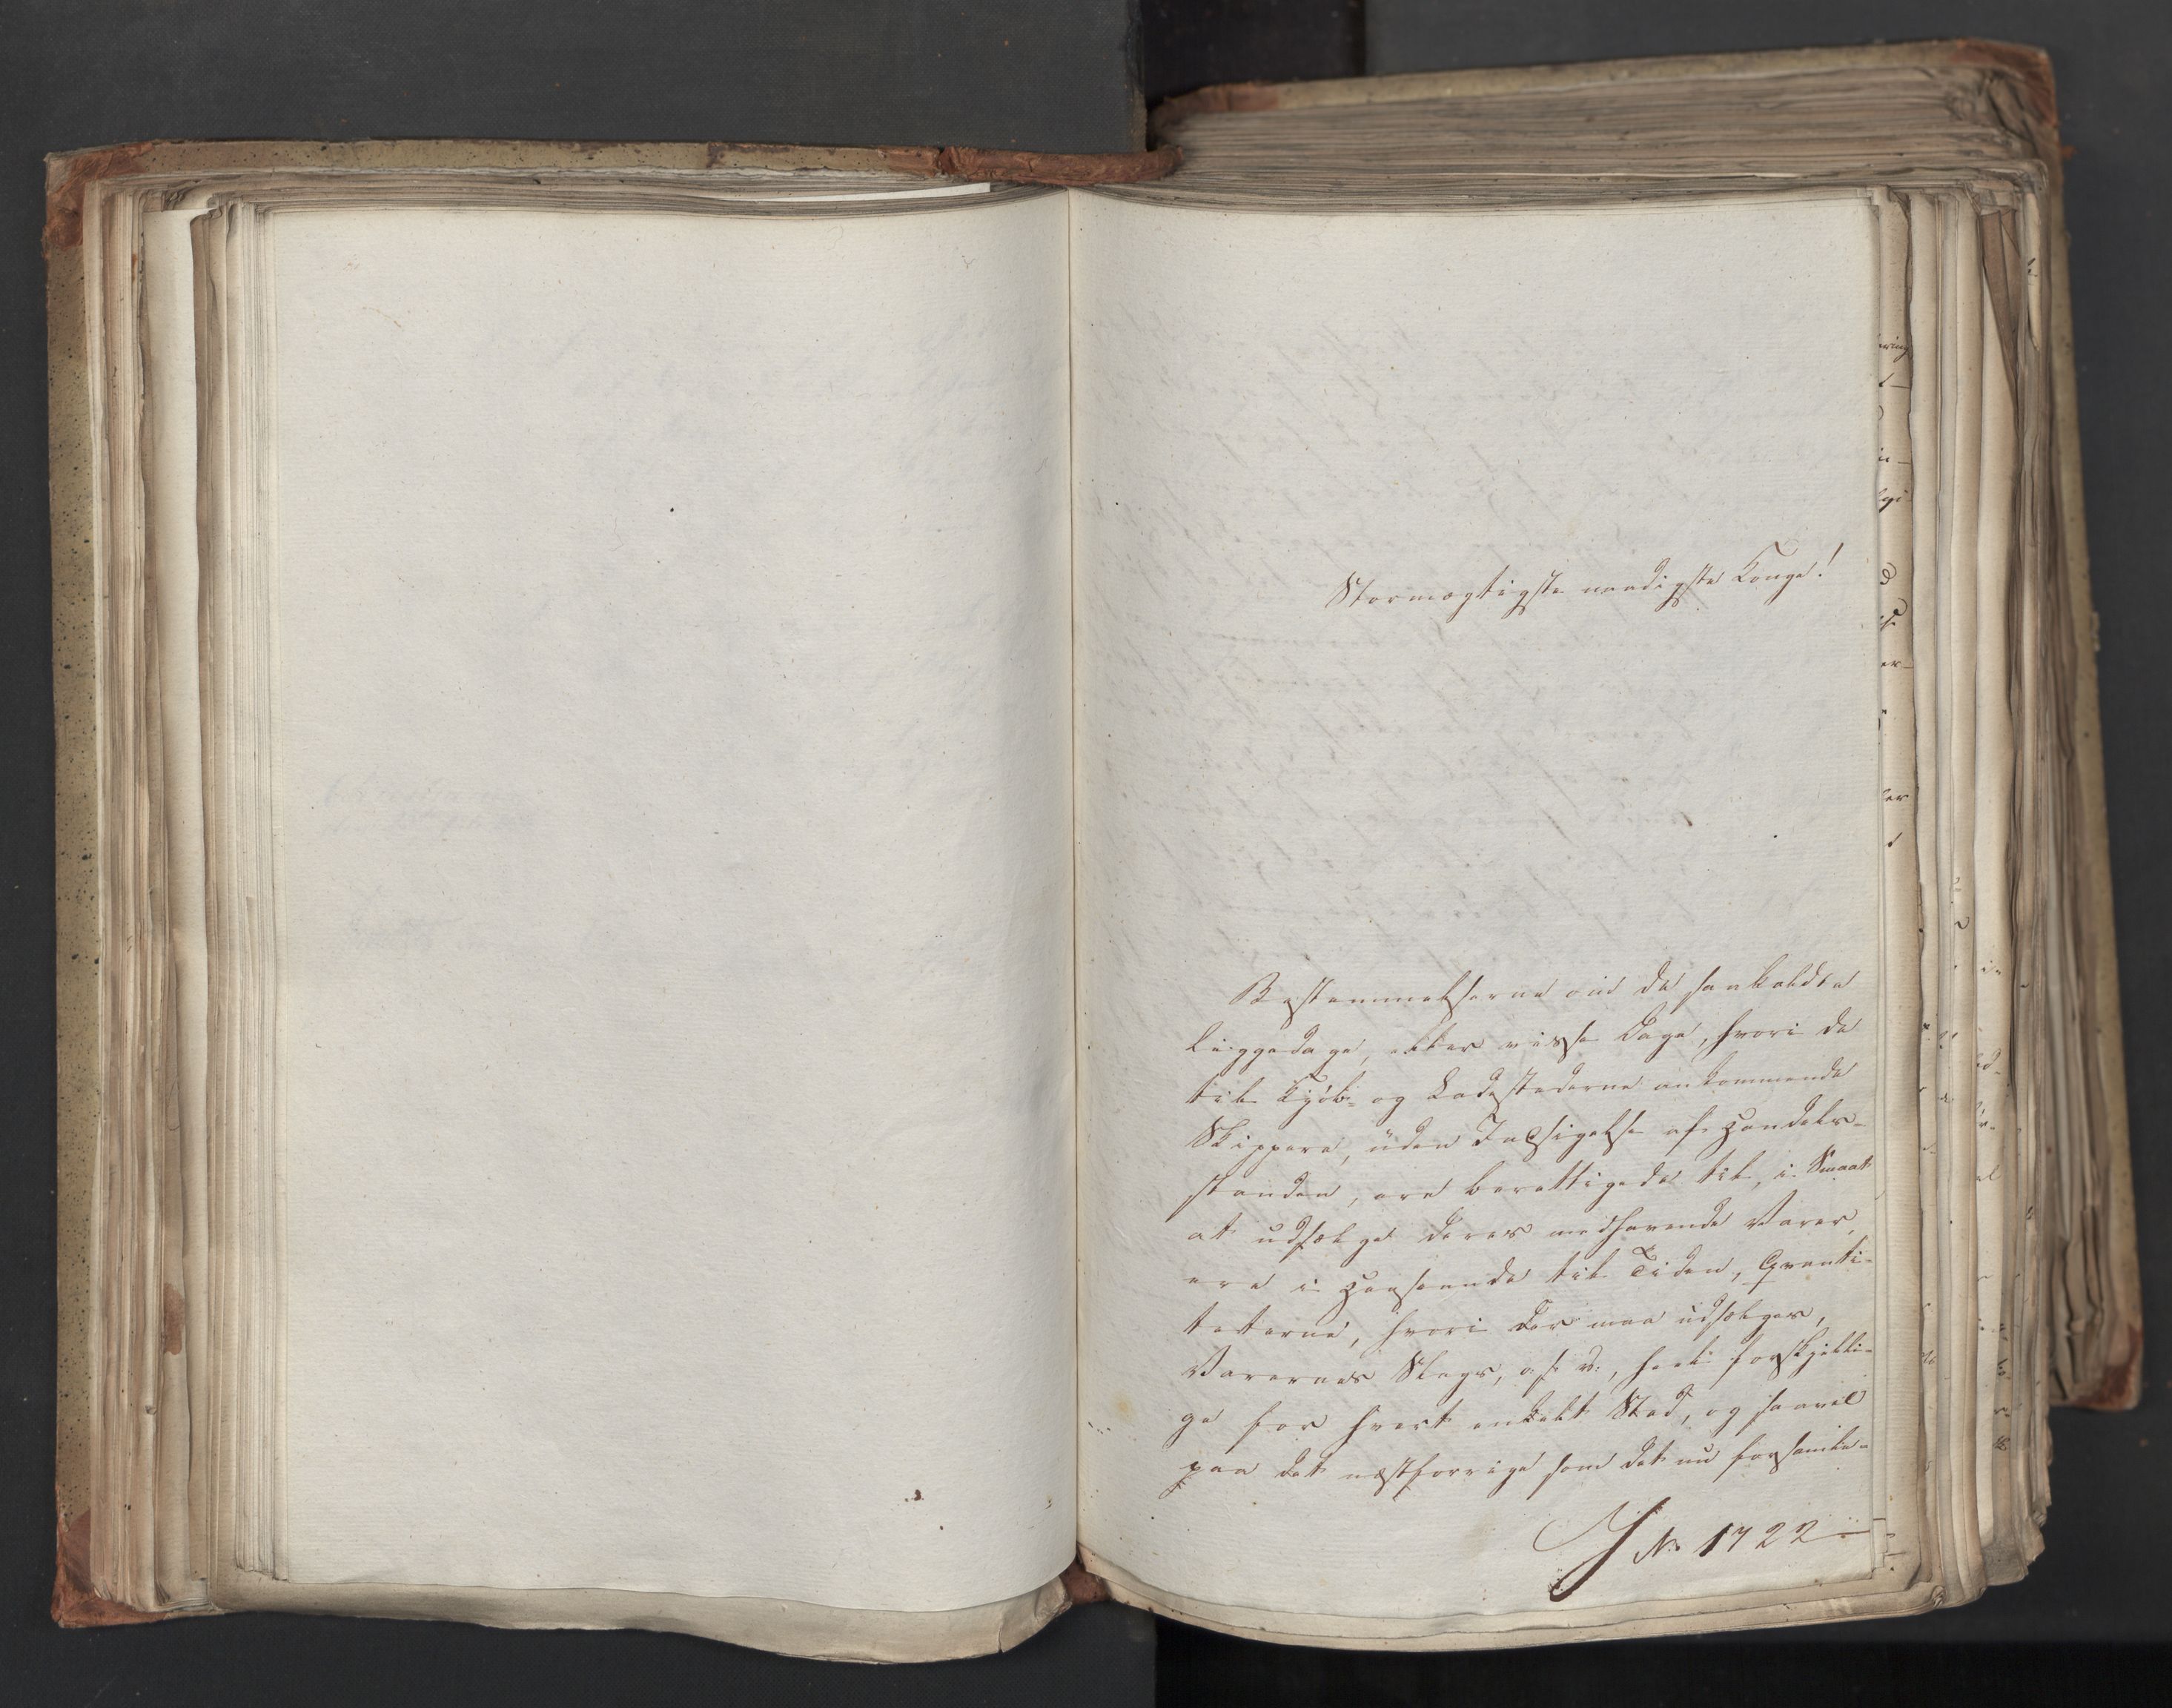 Stormægtigste naadigste Konge!
Bestemmelserne om de saakaldte
Liggedage, eller visse Dage, hvori de
til Kjøb- og Ladestederne ankommende
Skippere, uden Indsigelse af Handels-
standen, ere berettigede til, i Smaat
at udsælge deres medhavende Varer,
ere i Henseende til Tiden, Qvanti-
teterne, hvori der maa udsælges,
Varernes Slags, o. s. v., heel forskjelli-
ge for hvert enkelt Sted, og saavel
paa det næstforrige som det nu forsamle-
J No 1722